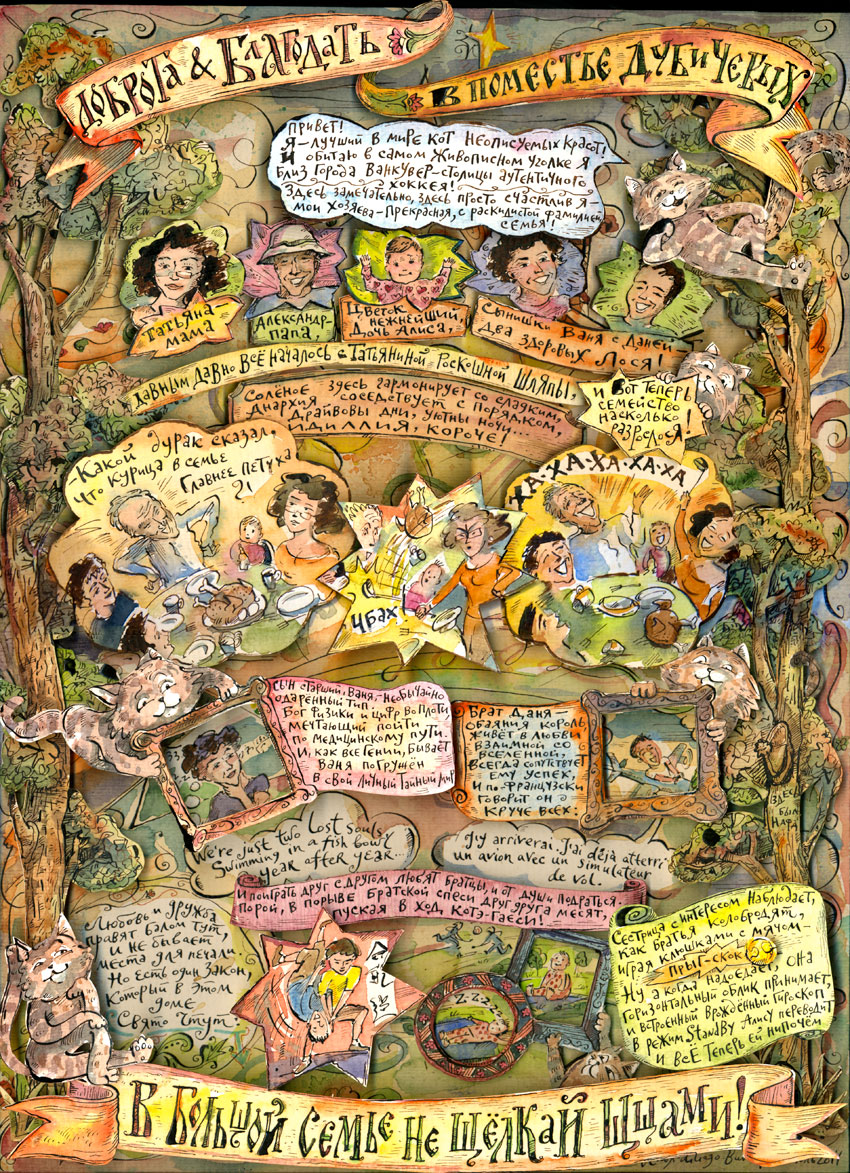 ДОБРОТА & БЛАГОДАТЬ
В ПОМЕСТЬЕ ДУБИЧЕВЫХ
ПРИВЕТ!
Я-ЛУЧШИЙ В МИРЕ КОТ НЕОПИСУЕМЫХ КРАСОТ!
И ОБИТАЮ В САМОМ ЖИВОПИСНОМ УГОЛКЕ Я
БЛИЗ ГОРОДА ВАНКУВЕР-СТОЛИЦЫ АУТЕНТИЧНОГО
ХОККЕЯ!
ЗДЕСЬ ЗАМЕЧАТЕЛЬНО, ЗДЕСЬ ПРОСТО СЧАСТЛИВ Я
МОИ ХОЗЯЕВА-ПРЕКРАСНАЯ, С РАСКИДИСТОЙ ФАМИЛИЕЙ,
СЕМЬЯ!
ТАТЬЯНА-
МАМА
АЛЕКСАНДР-
ПАПА,
ЦВЕТОК
НЕЖНЕЙШИЙ,
ДОЧЬ АЛИСА,
СЫНИШКИ ВАНЯ С ДАНЕЙ-
ДВА ЗДОРОВЫХ ЛОСЯ!
ДАВНЫМ ДАВНО ВСЁ НАЧАЛОСЬ С ТАТЬЯНИНОЙ РОСКОШНОЙ ШЛЯПЫ,
И ВОТ ТЕПЕРЬ
СЕМЕЙСТВО
НАСКОЛЬКО
РАЗРОСЛОСЯ!
СОЛЁНОЕ ЗДЕСЬ ГАРМОНИРУЕТ СО СЛАДКИМ,
АНАРХИЯ СОСЕДСТВУЕТ С ПОРЯДКОМ,
ДРАЙВОВЫ ДНИ, УЮТНЫ НОЧИ...
ИДИЛЛИЯ, КОРОЧЕ!
-КАКОЙ ДУРАК СКАЗАЛ,
ЧТО КУРИЦА В СЕМЬЕ
ГЛАВНЕЕ ПЕТУХА
?!
ЧБАХ!
ХА-ХА-ХА-ХА-ХА
СЫН СТАРШИЙ, ВАНЯ,-НЕОБЫЧАЙНО
ОДАРЕННЫЙ ТИП,
БОГ ФИЗИКИ И ЦИФР ВО ПЛОТИ
МЕЧТАЮЩИЙ ПОЙТИ
ПО МЕДИЦИНСКОМУ ПУТИ.
И, КАК ВСЕ ГЕНИИ, БЫВАЕТ
ВАНЯ ПОГРУЖЁН
В СВОЙ ЛИЧНЫЙ ТАЙНЫЙ МИР
БРАТ ДАНЯ-
ОБАЯНИЯ КОРОЛЬ
ЖИВЁТ В ЛЮБВИ
ВЗАИМНОЙ СО
ВСЕЛЕННОЙ,
ВСЕГДА СОПУТСТВУЕТ
ЕМУ УСПЕХ,
И ПО-ФРАНЦУЗСКИ
ГОВОРИТ ОН
КРУЧЕ ВСЕХ:
ЗДЕСЬ
БЫЛ
We're just two lost souls
Swimming in a fish bowl
year after year...
J'y arriverai. J'ai déjà atterri
un avion avec un simulateur
de vol.
И ПОИГРАТЬ ДРУГ С ДРУГОМ ЛЮБЯТ БРАТЦЫ, И ОТ ДУШИ ПОДРАТЬСЯ.
ПОРОЙ, В ПОРЫВЕ БРАТСКОЙ СПЕСИ ДРУГ ДРУГА МЕСЯТ,
ПУСКАЯ В ХОД КОТЭ-ГАЕСИ!
Любовь и дружба
правят балом тут,
и не бывает
места для печали.
Но есть один закон,
который в этом
доме
свято чтут
Z-Z-Z
СЕСТРИЦА С ИНТЕРЕСОМ НАБЛЮДАЕТ,
КАК БРАТЬЯ КОЛОБРОДЯТ,
ИГРАЯ КЛЮШКАМИ С МЯЧОМ-
ПРЫГ-СКОК
НУ А КОГДА НАДОЕДАЕТ, ОНА
ГОРИЗОНТАЛЬНЫЙ ОБЛИК ПРИНИМАЕТ,
И ВСТРОЕННЫЙ ВРОЖДЁННЫЙ ГИРОСКОП
В РЕЖИМ STANDBY АЛИСУ ПЕРЕВОДИТ
И ВСЁ ТЕПЕРЬ ЕЙ НИПОЧЁМ
В БОЛЬШОЙ СЕМЬЕ НЕ ЩЁЛКАЙ ЩЩАМИ!